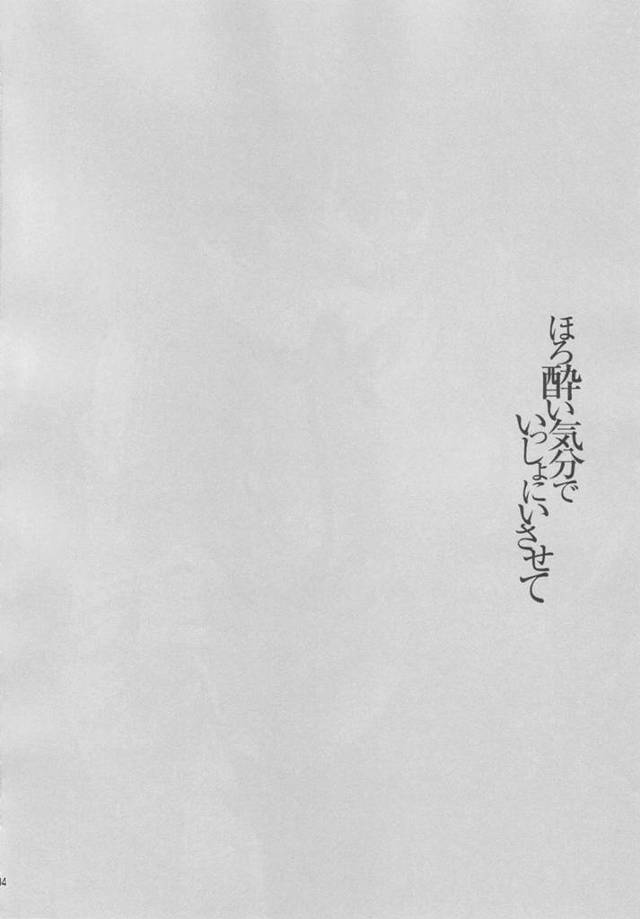 ほろ酔い気分で
いっしょにいさせて